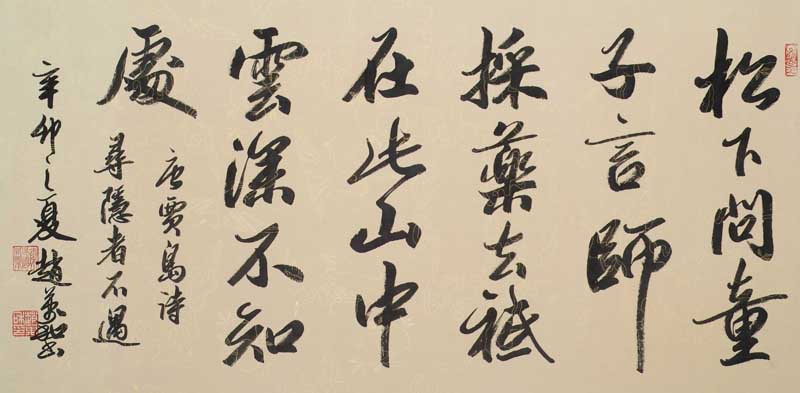 松下問童
子言師
採藥去祗
在此山中
雲深不知
處
唐賈島詩
尋隱者不遇
辛卯之夏趙